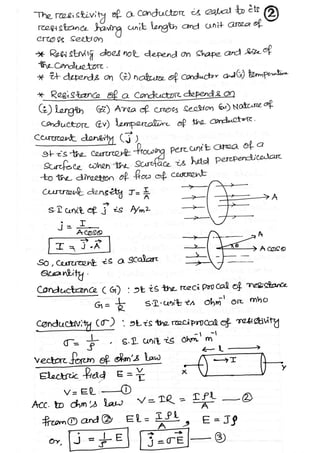 The resistivity of a conductor is equal to its ②
resistance having unit length and unit area of
cross section
* Resistivity does not depend on shape and size of
the conductor.
* It depends on (i) nature of conductor and (ii) temperature
* Resistance of a conductor depends on
(i) length (ii) Area of cross section (iii) Nature of
conductor (iv) temperature of the conductor.
Current density (j⃗)
It is the current flowing per unit area of a
surface when the surface is held perpendicular
to the direction of flow of current
current density J = I/A
→A
S.I unit of j is A/m2
j = I/A cosθ
A
θ
A cosθ
I = j⃗.A⃗
So, current is a scalar
quantity.
Conductance (G) : It is the reciprocal of resistance
G = 1/R S.I. unit is ohm⁻¹ or mho
Conductivity (σ) : It is the reciprocal of resistivity
σ = 1/ρ . S.I. unit is ohm⁻¹ m⁻¹
← L →
vector form of ohm's law
→I
X Y
Electric field E = V/l
V = El —①
Acc. to ohm's law V = IR = Iρl/A —②
from ① and ② El = Iρl/A , E = Jρ
or, j = 1/ρ E j⃗ = σE⃗ —③